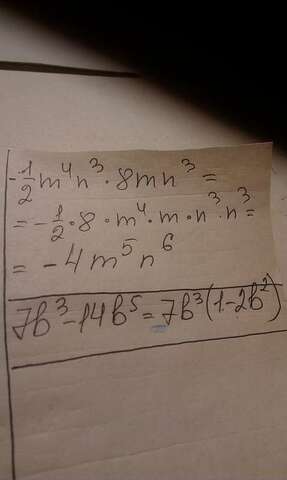 -1/2 m⁴n³ · 8mn³ =
= -1/2 · 8 · m⁴ · m · n³ · n³ =
= -4m⁵n⁶
7b³ - 14b⁵ = 7b³(1-2b²)